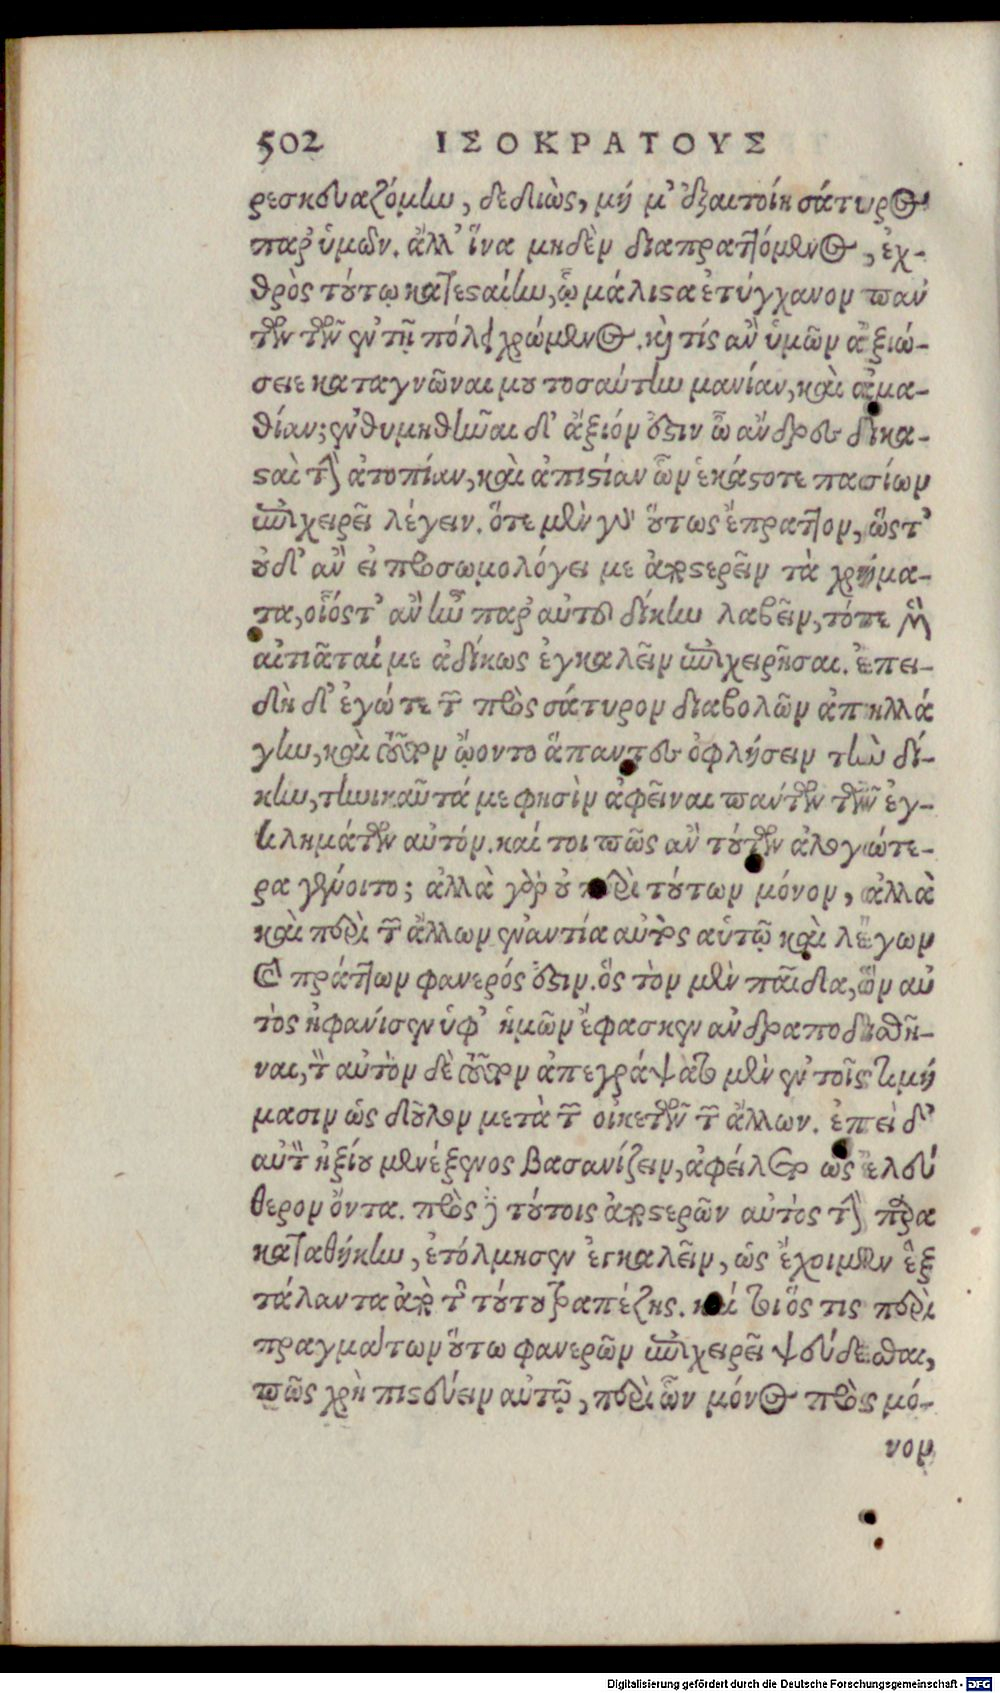 502 ΙΣΟΚΡΑΤΟΥΣ
ρεσκευαζόμην, δεδιὼς, μή μ' ἐξαιτοίη σάτυρος
παρ' ὑμῶν. ἀλλ' ἵνα μηδὲν διαπραττόμενος, ἐχ-
θρὸς τούτῳ κατασταίην, ᾧ μάλιστα ἐτύγχανον παν
των τῶν ἐν τῇ πόλει χρώμενος. καὶ τίς ἂν ὑμῶν ἀξιώ-
σειε καταγνῶναι μου τοσαύτην μανίαν, καὶ ἀμα-
θίαν; ἐνθυμηθῆναι δ' ἄξιόν ἐστιν ὦ ἄνδρες δικα-
σταὶ τὴν ἀτοπίαν, καὶ ἀπιστίαν ὧν ἑκάστοτε πασίων
ἐπιχειρεῖ λέγειν. ὅτε μὲν γὰρ οὕτως ἔπραττον, ὥστ'
οὐδ' ἂν εἰ προσωμολόγει με ἀποστερεῖν τὰ χρήμα-
τα, οἷός τ' ἂν ἦν παρ' αὐτοῦ δίκην λαβεῖν, τότε μὲν
αἰτιᾶταί με ἀδίκως ἐγκαλεῖν ἐπιχειρῆσαι. ἐπει-
δὴ δ' ἐγώ τε τῶν πρὸς σάτυρον διαβολῶν ἀπηλλά
γην, καὶ τοῦτον ᾤοντο ἅπαντες ὀφλήσειν τὴν δί-
κην, τηνικαῦτά με φησὶν ἀφεῖναι πάντων τῶν ἐγ-
κλημάτων αὐτόν. καί τοι πῶς ἂν τούτων ἀλογώτε-
ρα γένοιτο; ἀλλὰ γὰρ οὐ περὶ τούτων μόνον, ἀλλὰ
καὶ περὶ τῶν ἄλλων ἐναντία αὐτὸς αὑτῷ καὶ λέγων
καὶ πράττων φανερός ἐστιν. ὃς τὸν μὲν παῖδα, ὃν αὐ
τὸς ἠφάνισεν ὑφ' ἡμῶν ἔφασκεν ἀνδραποδισθῆ-
ναι, τὸν αὐτὸν δὲ τοῦτον ἀπεγράψατο μὲν ἐν τοῖς τιμή
μασιν ὡς δοῦλον μετὰ τῶν οἰκετῶν τῶν ἄλλων. ἐπεὶ δ'
αὐτὸν ἠξίου μενέξενος βασανίζειν, ἀφείλετο ὡς ἐλεύ
θερον ὄντα. πρὸς δὲ τούτοις ἀποστερῶν αὐτὸς τὴν παρα
καταθήκην, ἐτόλμησεν ἐγκαλεῖν, ὡς ἔχοιμεν ἓξ
τάλαντα ἀπὸ τῆς τούτου τραπέζης. καί τοι ὅς τις περὶ
πραγμάτων οὕτω φανερῶν ἐπιχειρεῖ ψεύδεσθαι,
πῶς χρὴ πιστεύειν αὐτῷ, περὶ ὧν μόνος πρὸς μό-
νον
Digitalisierung gefördert durch die Deutsche Forschungsgemeinschaft - DFG